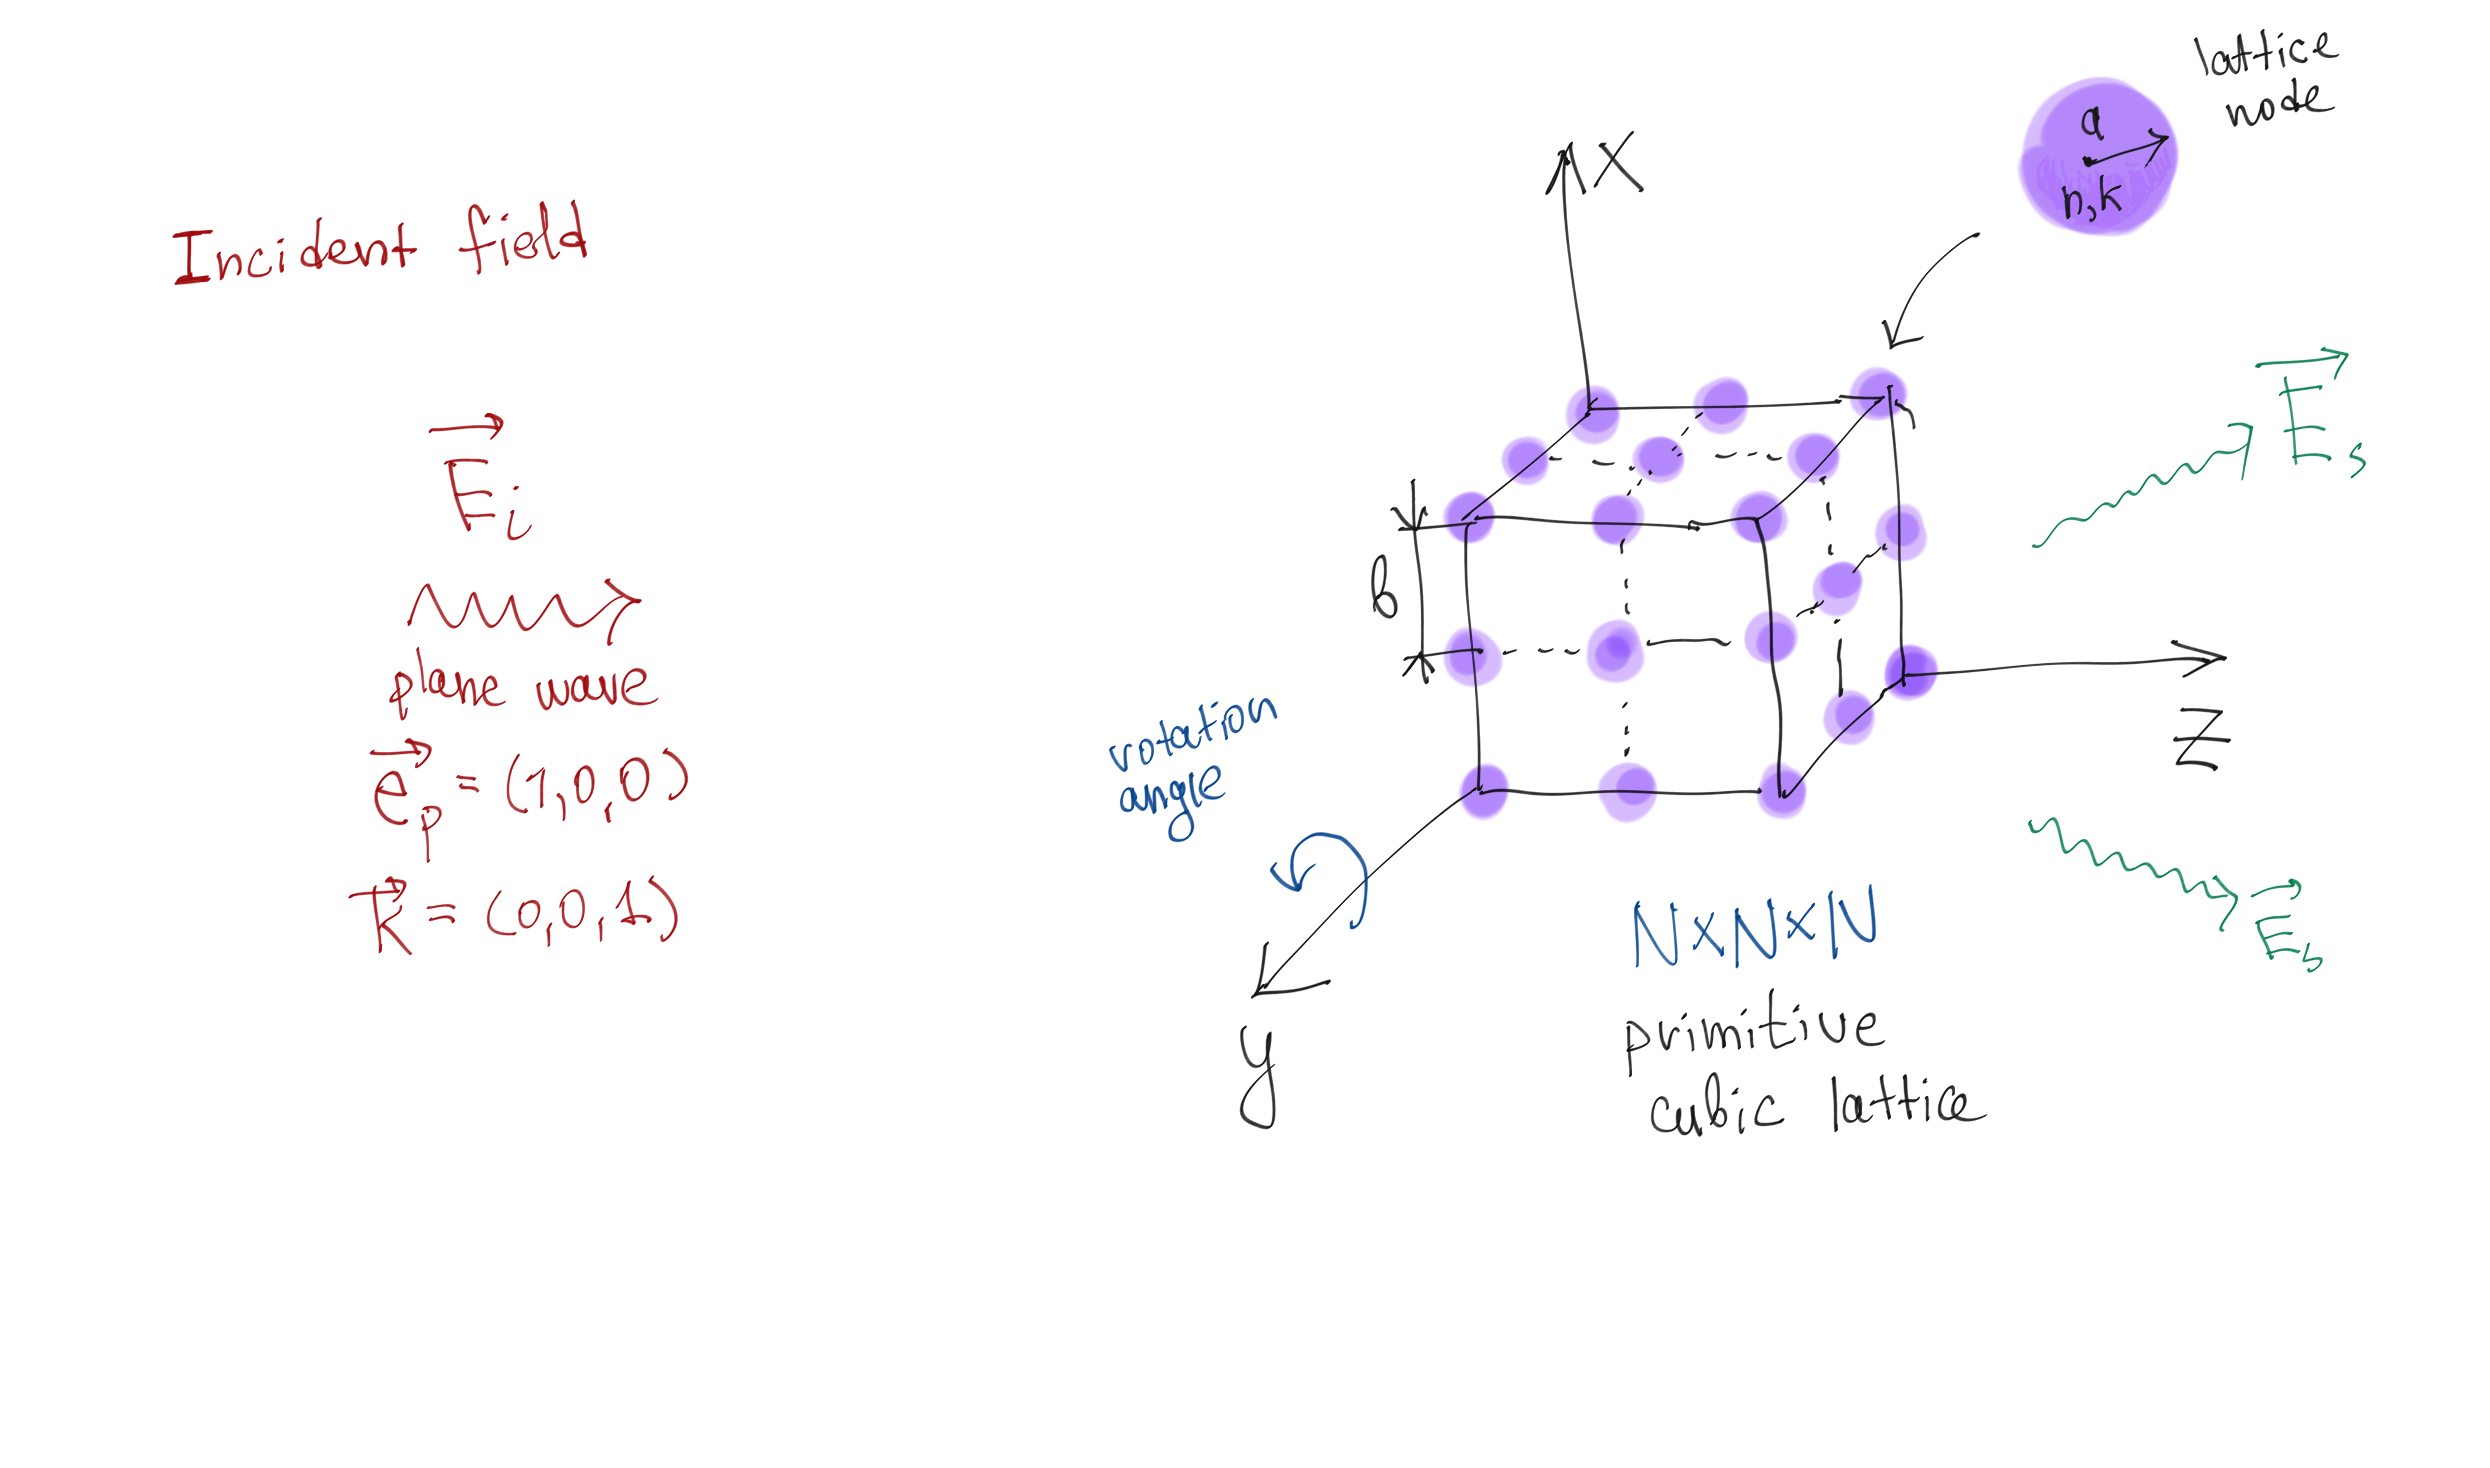 Incident field
E⃗i
plane wave
e⃗p = (1,0,0)
k⃗ = (0,0,1)
lattice
node
a
n,k
X
b
Z
y
rotation
angle
E⃗s
E⃗s
N×N×N
primitive
cubic lattice